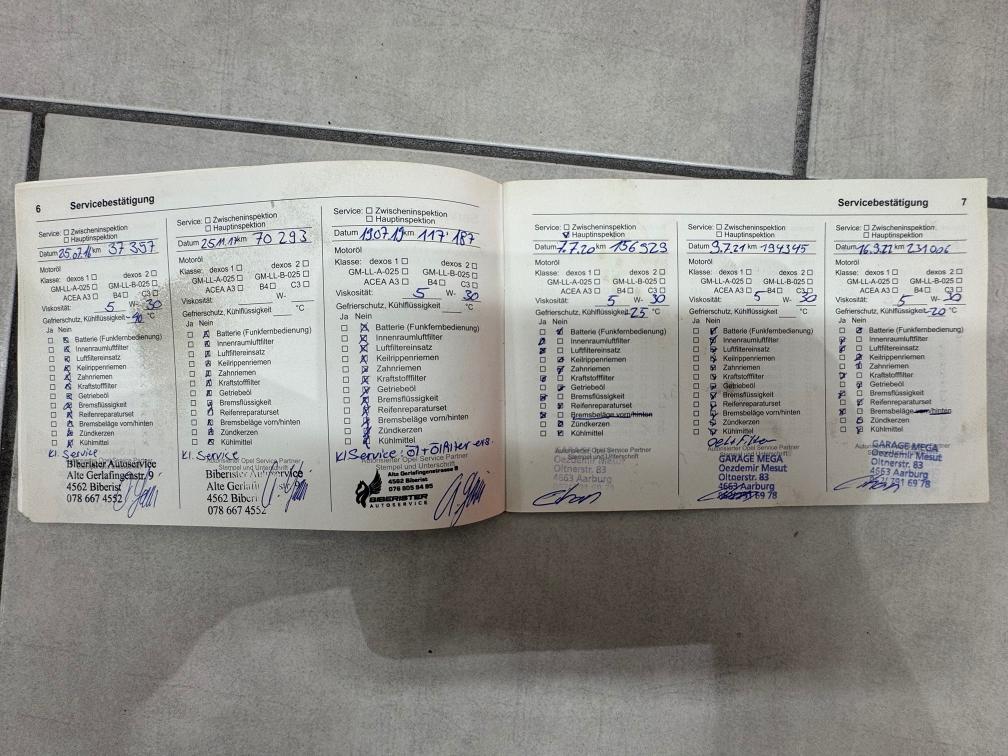 6 Servicebestätigung
Service: ☐ Zwischeninspektion
☐ Hauptinspektion
Datum 25.07.16 km 37 357
Motoröl
Klasse: dexos 1 ☐ dexos 2 ☐
GM-LL-A-025 ☐ GM-LL-B-025 ☐
ACEA A3 ☐ B4 ☐ C3 ☐
Viskosität: 5 W- 30
Gefrierschutz, Kühlflüssigkeit °C
Ja Nein
Batterie (Funkfernbedienung)
Innenraumluftfilter
Luftfiltereinsatz
Keilrippenriemen
Zahnriemen
Kraftstofffilter
Getriebeöl
Bremsflüssigkeit
Reifenreparaturset
Bremsbeläge vorn/hinten
Zündkerzen
Kühlmittel
Kl. Service
Biberister Autoservice
Alte Gerlafingenstr. 9
4562 Biberist
078 667 4552
Service: ☐ Zwischeninspektion
☐ Hauptinspektion
Datum 25.11.17 km 70 293
Motoröl
Klasse: dexos 1 ☐ dexos 2 ☐
GM-LL-A-025 ☐ GM-LL-B-025 ☐
ACEA A3 ☐ B4 ☐ C3 ☐
Viskosität: 5 W- 30
Gefrierschutz, Kühlflüssigkeit °C
Ja Nein
Batterie (Funkfernbedienung)
Innenraumluftfilter
Luftfiltereinsatz
Keilrippenriemen
Zahnriemen
Kraftstofffilter
Getriebeöl
Bremsflüssigkeit
Reifenreparaturset
Bremsbeläge vorn/hinten
Zündkerzen
Kühlmittel
Kl. Service
Autorisierter Opel Service Partner
Stempel und Unterschrift
078 667 4552
Service: ☐ Zwischeninspektion
☐ Hauptinspektion
Datum 19.07.19 km 117 187
Motoröl
Klasse: dexos 1 ☐ dexos 2 ☐
GM-LL-A-025 ☐ GM-LL-B-025 ☐
ACEA A3 ☐ B4 ☐ C3 ☐
Viskosität: 5 W- 30
Gefrierschutz, Kühlflüssigkeit °C
Ja Nein
Batterie (Funkfernbedienung)
Innenraumluftfilter
Luftfiltereinsatz
Keilrippenriemen
Zahnriemen
Kraftstofffilter
Getriebeöl
Bremsflüssigkeit
Reifenreparaturset
Bremsbeläge vorn/hinten
Zündkerzen
Kühlmittel
Kl Service: Öl + Ölfilter ers.
Autorisierter Opel Service Partner
Stempel und Unterschrift
Alte Gerlafingenstrasse 9
4562 Biberist
BIBERISTER
AUTOSERVICE
Servicebestätigung 7
Service: ☐ Zwischeninspektion
☑ Hauptinspektion
Datum 7.7.20 km 156 529
Motoröl
Klasse: dexos 1 ☐ dexos 2 ☐
GM-LL-A-025 ☐ GM-LL-B-025 ☐
ACEA A3 ☐ B4 ☐ C3 ☐
Viskosität: 5 W- 30
Gefrierschutz, Kühlflüssigkeit -25 °C
Ja Nein
Batterie (Funkfernbedienung)
Innenraumluftfilter
Luftfiltereinsatz
Keilrippenriemen
Zahnriemen
Kraftstofffilter
Getriebeöl
Bremsflüssigkeit
Reifenreparaturset
Bremsbeläge vorn/hinten
Zündkerzen
Kühlmittel
Autorisierter Opel Service Partner
Stempel und Unterschrift
Oltnerstr. 83
4663 Aarburg
Service: ☐ Zwischeninspektion
☐ Hauptinspektion
Datum 9.7.21 km 194345
Motoröl
Klasse: dexos 1 ☐ dexos 2 ☐
GM-LL-A-025 ☐ GM-LL-B-025 ☐
ACEA A3 ☐ B4 ☐ C3 ☐
Viskosität: 5 W- 30
Gefrierschutz, Kühlflüssigkeit °C
Ja Nein
Batterie (Funkfernbedienung)
Innenraumluftfilter
Luftfiltereinsatz
Keilrippenriemen
Zahnriemen
Kraftstofffilter
Getriebeöl
Bremsflüssigkeit
Reifenreparaturset
Bremsbeläge vorn/hinten
Zündkerzen
Kühlmittel
Autorisierter Opel Service Partner
Stempel und Unterschrift
GARAGE MEGA
Oezdemir Mesut
Oltnerstr. 83
4663 Aarburg
Service: ☐ Zwischeninspektion
☐ Hauptinspektion
Datum 16.9.22 km 231006
Motoröl
Klasse: dexos 1 ☐ dexos 2 ☐
GM-LL-A-025 ☐ GM-LL-B-025 ☐
ACEA A3 ☐ B4 ☐ C3 ☐
Viskosität: 5 W- 30
Gefrierschutz, Kühlflüssigkeit -20 °C
Ja Nein
Batterie (Funkfernbedienung)
Innenraumluftfilter
Luftfiltereinsatz
Keilrippenriemen
Zahnriemen
Kraftstofffilter
Getriebeöl
Bremsflüssigkeit
Reifenreparaturset
Bremsbeläge vorn/hinten
Zündkerzen
Kühlmittel
GARAGE MEGA
Oezdemir Mesut
Oltnerstr. 83
4663 Aarburg
791 69 78